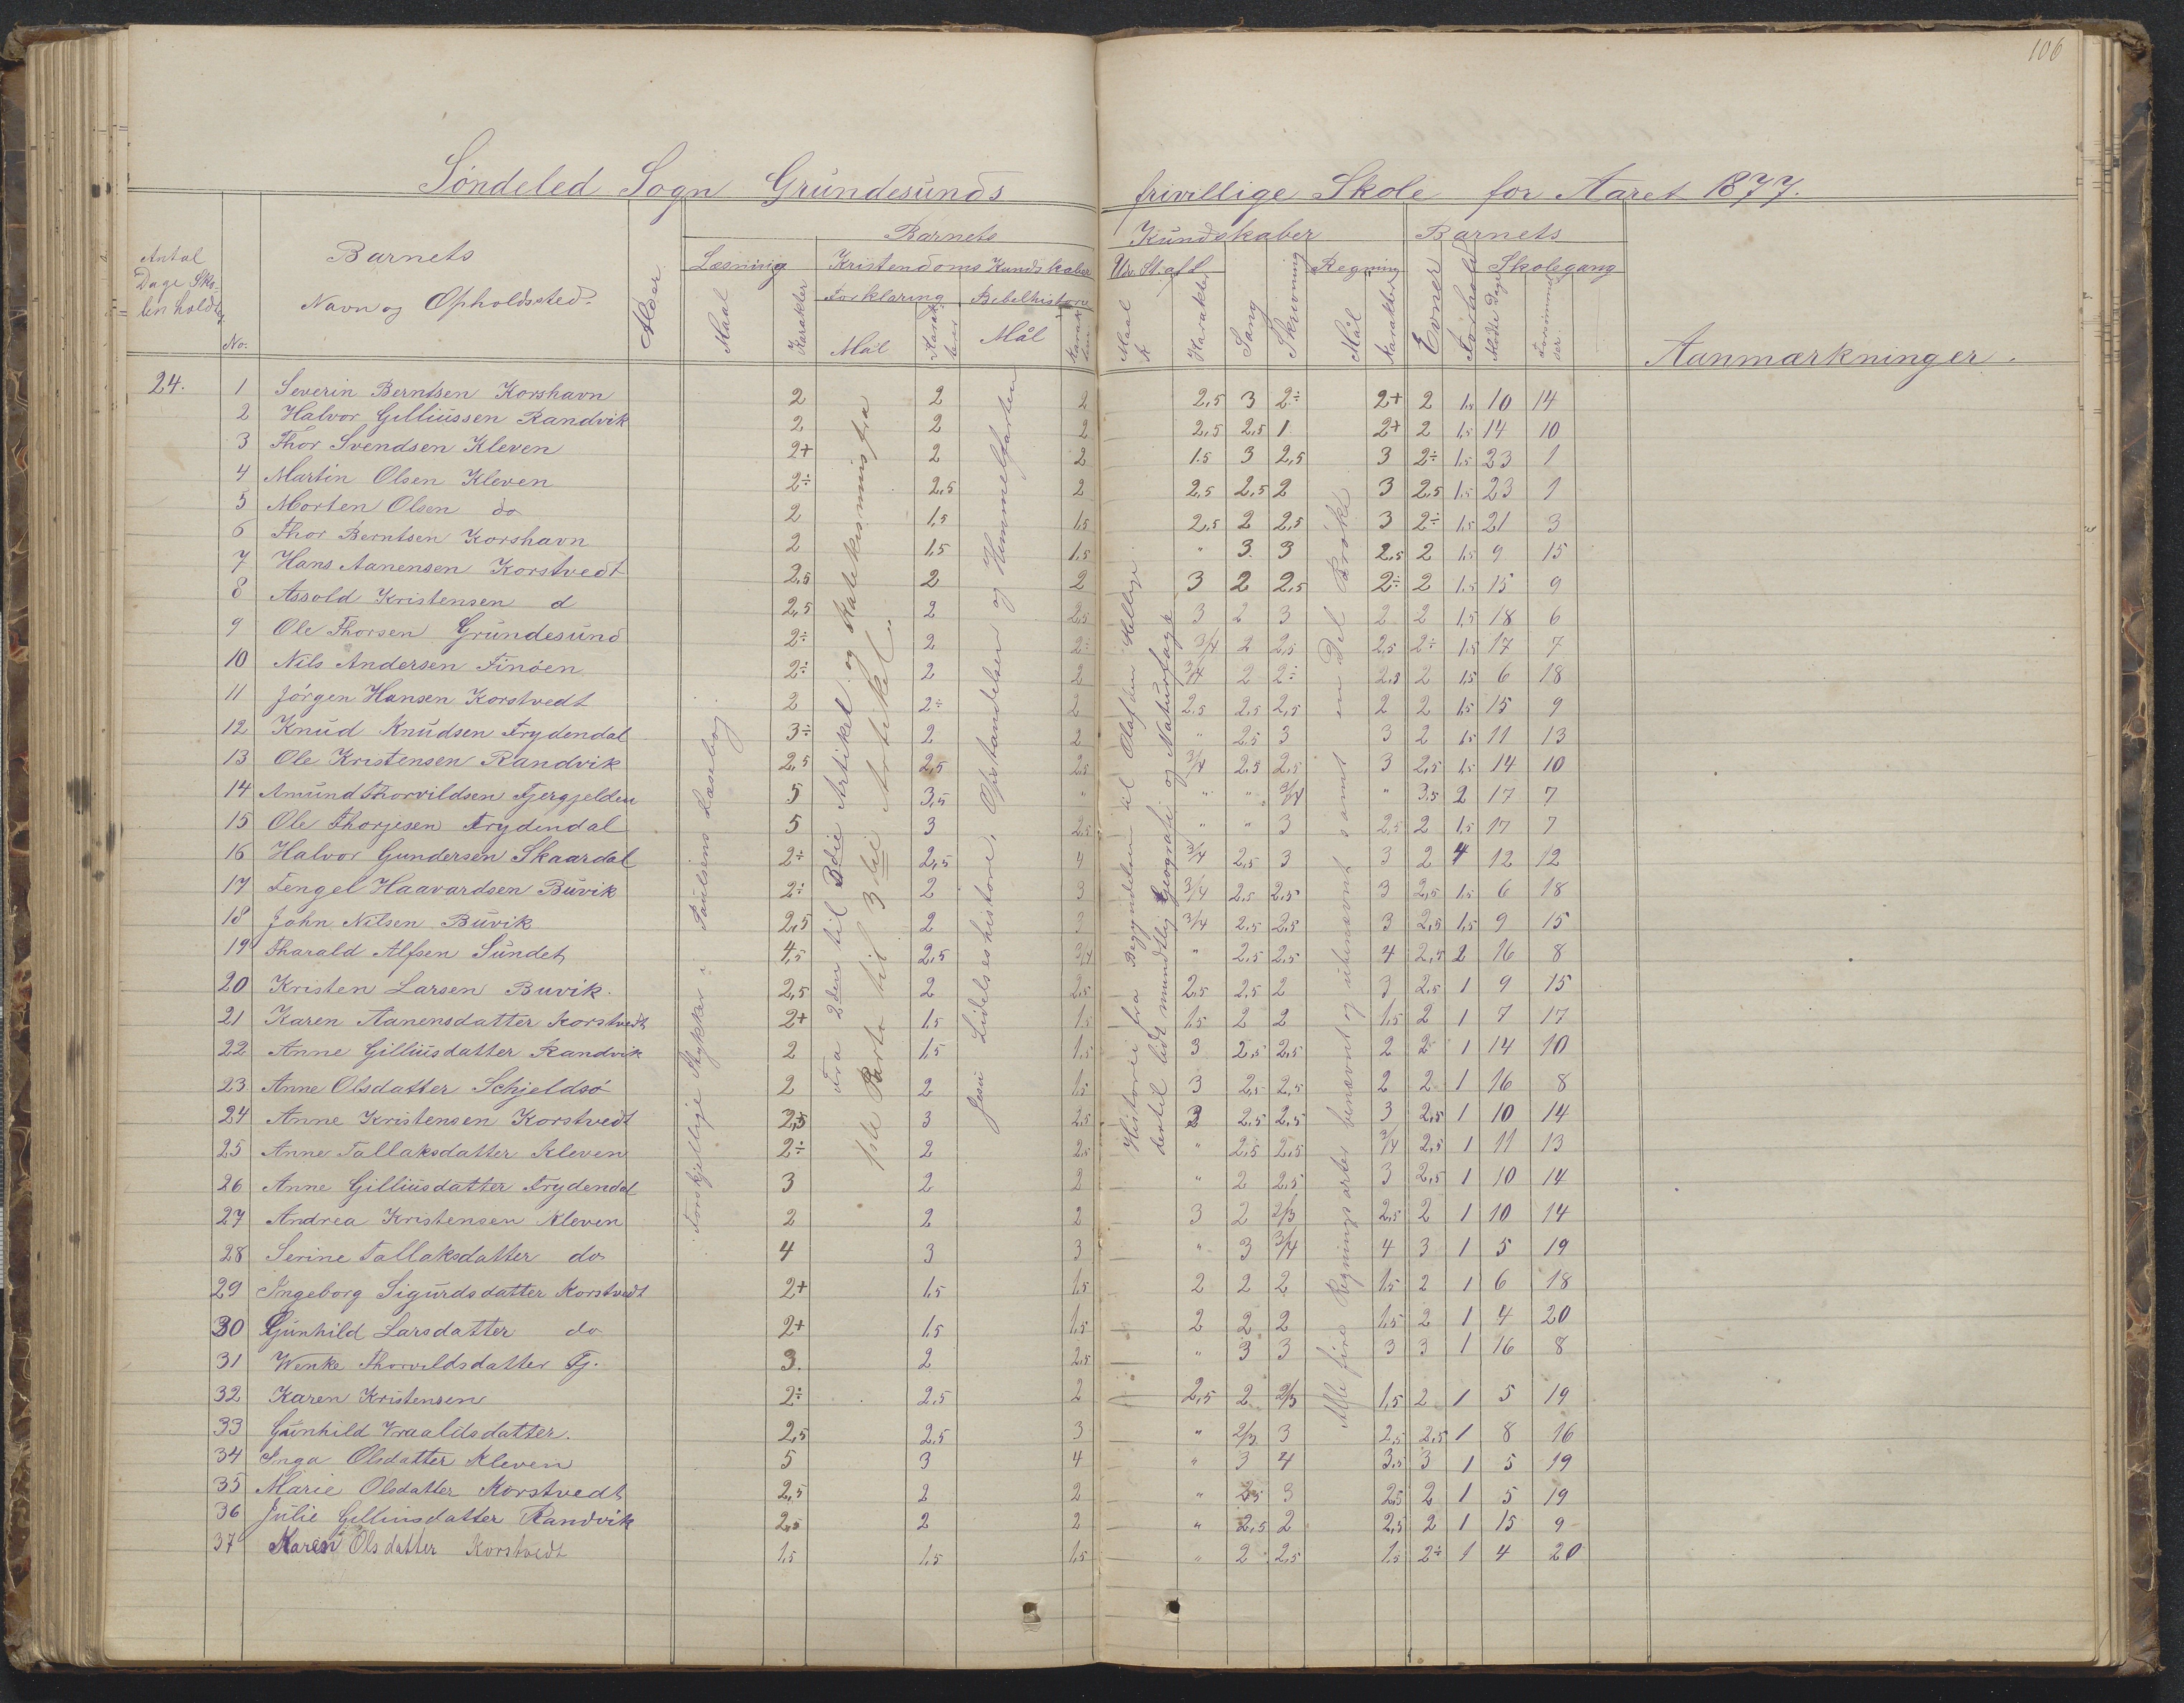 106
Söndeled Sogn Grundesunds frivillige Skole for Aaret 1877.
Antal Dage Skolen holdt
No.
Barnets Navn og Opholdssted.
Alder
Barnets Kundskaber
Læsning
Kristendoms Kundskaber
Udv. St. aff.
Regning
Forklaring
Bibelhistorie
Maal
Karakter
Mål
Karakter
Mål
Karakter
Maal
Karakter
Sang
Skrivning
Mål
Karakter
Barnets
Evner
Forhold
Skolegang
Mødte Dage
Forsømmelser.
Aanmærkninger.
Forskjellige Stykker i Paulsens Læsebog.
Fra 2den til 3die Artikel og Katekismus fra
1ste Part til 3die Artikel
Jesu Lidelseshistorie, Opstandelser og Himmelfarten
Historie fra Begyndelsen til Olaf den Hellige
dertil lidt mundtlig Geografi og Naturfag
Alle fire Regningsarter benævnt og ubenævnt samt en Del Brøk
24. 1 Severin Berntsen Korshavn 2 2 2 2,5 3 2÷ 2+ 2 1,5 10 14
2 Halvor Gilliussen Randvik 2 2 2 2,5 2,5 1 2+ 2 1,5 14 10
3 Thor Svendsen Kleven 2+ 2 2 1.5 3 2,5 3 2÷ 1,5 23 1
4 Martin Olsen Kleven 2÷ 2,5 2 2,5 2,5 2 3 2,5 1,5 23 1
5 Morten Olsen do 2 1,5 1,5 2,5 2 2,5 3 2÷ 1,5 21 3
6 Thor Berntsen Korshavn 2 1,5 1,5 " 3 3 2,5 2 1,5 9 15
7 Hans Aanensen Korstvedt 2,5 2 2 3 2 2,5 2÷ 2 1,5 15 9
8 Assold Kristensen d 2,5 2 2,5 3 2 3 2 2 1,5 18 6
9 Ole Thorsen Grundesund 2÷ 2 2÷ 3/4 2 2,5 2,5 2÷ 1,5 17 7
10 Nils Andersen Finöen 2÷ 2 2 3/4 2 2÷ 2,5 2 1,5 6 18
11 Jörgen Hansen Korstvedt 2 2÷ 2 2,5 2,5 2,5 2 2 1,5 15 9
12 Knud Knudsen Frydendal 3÷ 2 2 " 2,5 3 3 2 1,5 11 13
13 Ole Kristensen Randvik 2,5 2,5 2,5 3/4 2,5 2,5 3 2,5 1,5 14 10
14 Amund Thorvildsen Fjergjelden 5 3,5 " " " 3/4 " 3,5 2 17 7
15 Ole Thorjesen Frydendal 5 3 2,5 " " 3 2,5 2 1,5 17 7
16 Halvor Gundersen Skaardal 2÷ 2,5 4 3/4 2,5 3 3 2 4 12 12
17 Tengel Haavardsen Buvik 2÷ 2 3 3/4 2,5 2,5 3 2,5 1,5 6 18
18 John Nilsen Buvik 2,5 2 2 3/4 2,5 2,5 3 2,5 1,5 9 15
19 Tharald Alfsen Sundet 4,5 2,5 3/4 " 2,5 2,5 4 2,5 2 16 8
20 Kristen Larsen Buvik. 2,5 2 2,5 2,5 2,5 2 3 2,5 1 9 15
21 Karen Aanensdatter Korstvedt 2+ 1,5 1,5 1,5 2 2 1,5 2 1 7 17
22 Anne Gilliusdatter Randvik 2 1,5 1,5 3 2,5 2,5 2 2 1 14 10
23 Anne Olsdatter Schjeldsö 2 2 1,5 3 2,5 2,5 2 2 1 16 8
24 Anne Kristensen Korstvedt 2,5 3 2,5 3 2,5 2,5 3 2,5 1 10 14
25 Anne Tallaksdatter Kleven 2÷ 2 2,5 " 2,5 2,5 3/4 2,5 1 11 13
26 Anne Gilliusdatter Frydendal 3 2 2 " 2 2,5 3 2,5 1 10 14
27 Andrea Kristensen Kleven 2 2 2 3 2 2/3 2,5 2 1 10 14
28 Serine Tallaksdatter do 4 3 3 " 3 3/4 4 3 1 5 19
29 Ingeborg Sigurdsdatter Korstvedt 2+ 1,5 1,5 2 2 2 1,5 2 1 6 18
30 Gunhild Larsdatter do 2+ 1,5 1,5 2 2 2 1,5 2 1 4 20
31 Wenke Thorvildsdatter Fj. 3. 2 2,5 " 3 3 3 3 1 16 8
32 Karen Kristensen 2÷ 2,5 2 2,5 2 2/3 1,5 2 1 5 19
33 Gunhild Vraaldsdatter. 2,5 2,5 3 " 2/3 3 2,5 2,5 1 8 16
34 Inga Olsdatter Kleven 5 3 4 " 3 4 3,5 3 1 5 19
35 Marie Olsdatter Korstvedt 2,5 2 2 " 2,5 3 2,5 2 1 5 19
36 Julie Gilliusdatter Randvik 2,5 2 2 " 2,5 2 2,5 2 1 15 9
37 Karen Olsdatter Korstvedt 1,5 1,5 1,5 " 2 2,5 1,5 2÷ 1 4 20